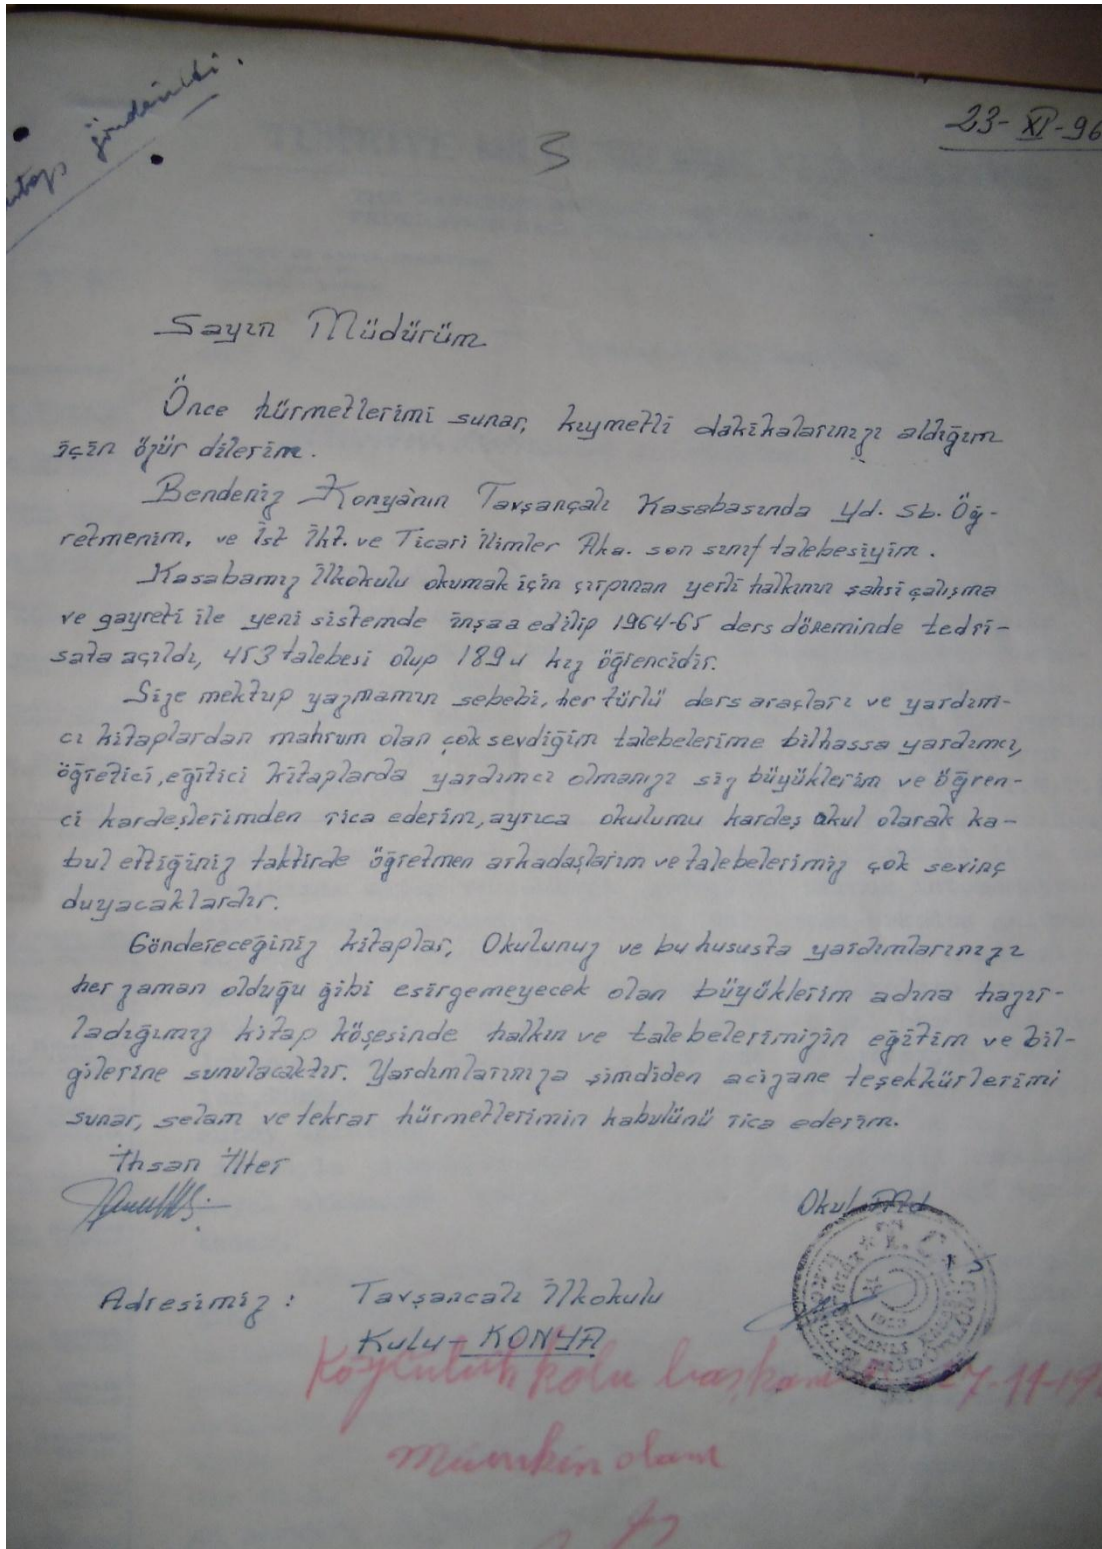 gönderildi.
3
23-XI-96
Sayın Müdürüm
Önce hürmetlerimi sunar, kıymetli dakikalarınızı aldığım
için özür dilerim.
Bendeniz Konya'nın Tavşançalı Kasabasında Yd. Sb. Öğ-
retmenim, ve İst İkt. ve Ticari İlimler Aka. son sınıf talebesiyim.
Kasabamız İlkokulu okumak için çırpınan yerli halkının şahsi çalışma
ve gayreti ile yeni sistemde inşaa edilip 1964-65 ders döneminde tedri-
sata açıldı, 453 talebesi olup 189 u kız öğrencidir.
Size mektup yazmamın sebebi, her türlü ders araçları ve yardım-
cı kitaplardan mahrum olan çok sevdiğim talebelerime bilhassa yardımcı,
öğretici, eğitici kitaplarda yardımcı olmanızı siz büyüklerim ve öğren-
ci kardeşlerimden rica ederim, ayrıca okulumu kardeş okul olarak ka-
bul ettiğiniz taktirde öğretmen arkadaşlarım ve talebelerimiz çok sevinç
duyacaklardır.
Göndereceğiniz kitaplar, Okulunuz ve bu hususta yardımlarınızı
her zaman olduğu gibi esirgemeyecek olan büyüklerim adına hazır-
ladığımız kitap köşesinde halkın ve talebelerimizin eğitim ve bil-
gilerine sunulacaktır. Yardımlarınıza şimdiden acizane teşekkürlerimi
sunar, selam ve tekrar hürmetlerimin kabulünü rica ederim.
İhsan İlter
Okul Md
T.C.
Adresimiz : Tavşancalı İlkokulu
Kulu-KONYA
Köycülük kolu
mümkin olanı